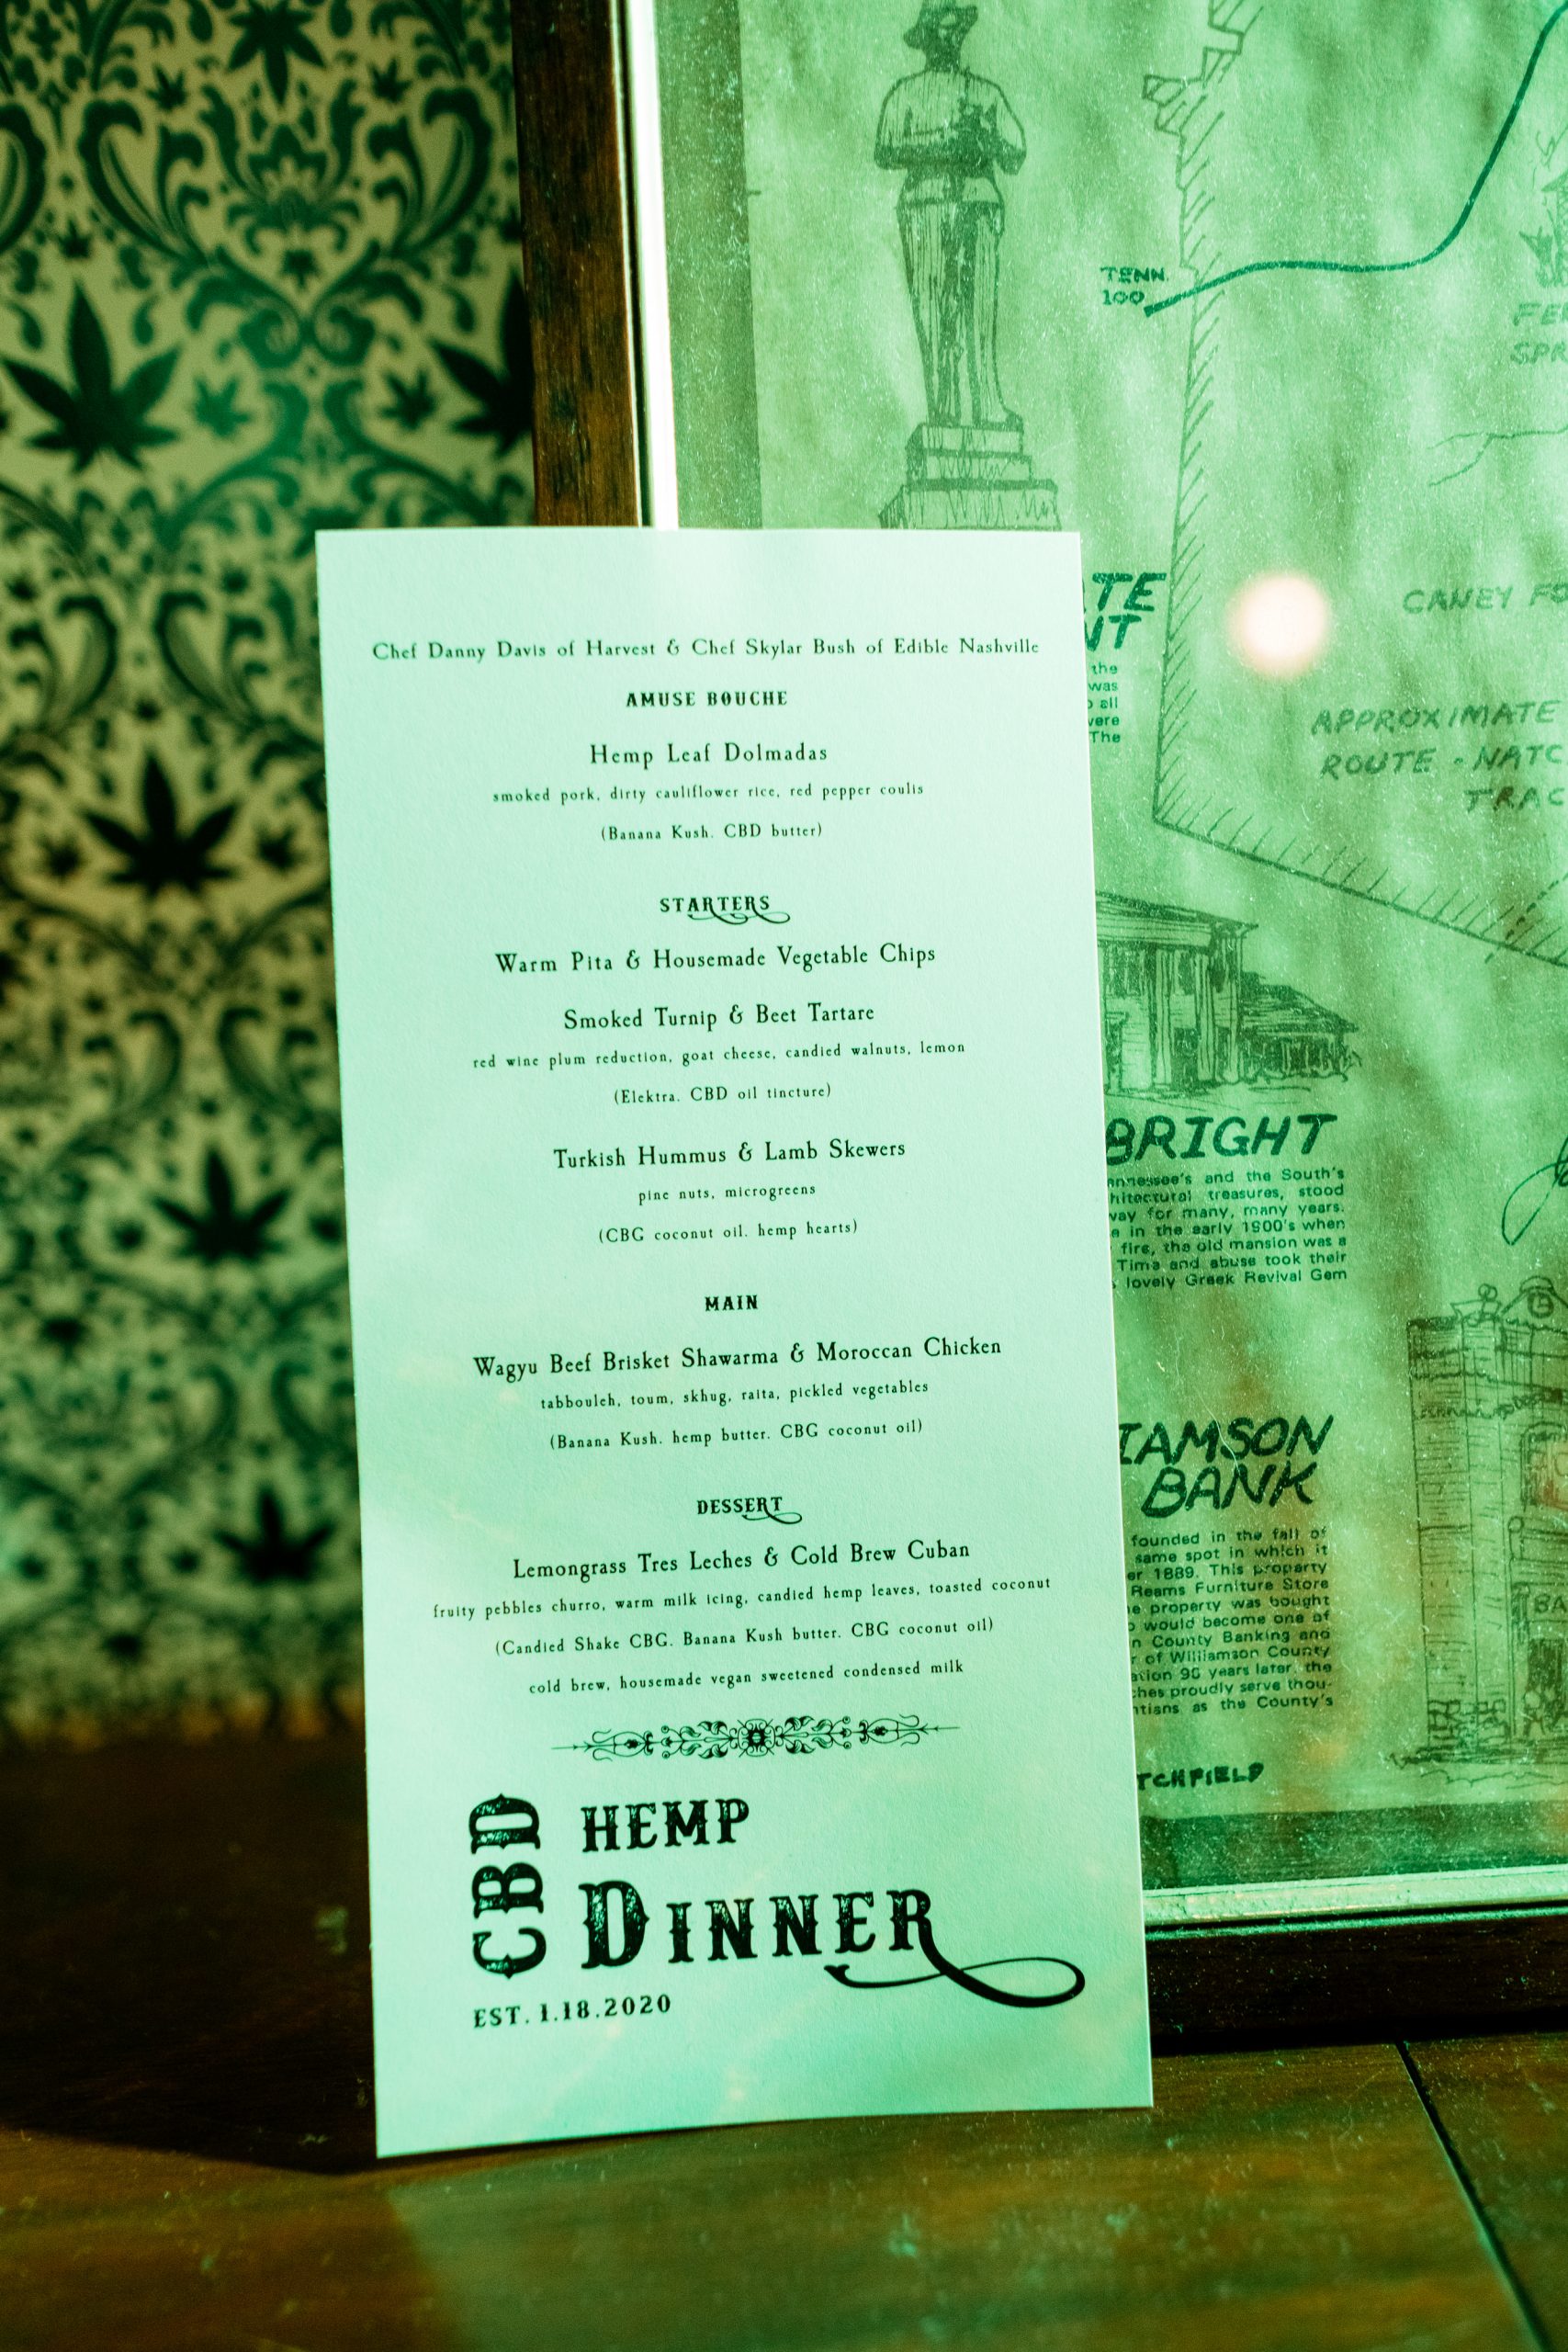 Chef Danny Davis of Harvest & Chef Skylar Bush of Edible Nashville
AMUSE BOUCHE
Hemp Leaf Dolmadas
smoked pork, dirty cauliflower rice, red pepper coulis
(Banana Kush. CBD butter)
STARTERS
Warm Pita & Housemade Vegetable Chips
Smoked Turnip & Beet Tartare
red wine plum reduction, goat cheese, candied walnuts, lemon
(Elektra. CBD oil tincture)
Turkish Hummus & Lamb Skewers
pine nuts, microgreens
(CBG coconut oil. hemp hearts)
MAIN
Wagyu Beef Brisket Shawarma & Moroccan Chicken
tabbouleh, toum, skhug, raita, pickled vegetables
(Banana Kush. hemp butter. CBG coconut oil)
DESSERT
Lemongrass Tres Leches & Cold Brew Cuban
fruity pebbles churro, warm milk icing, candied hemp leaves, toasted coconut
(Candied Shake CBG. Banana Kush butter. CBG coconut oil)
cold brew, housemade vegan sweetened condensed milk
CBD
HEMP
DINNER
EST. 1.18.2020
TENN.
100
CANEY FO
APPROXIMATE
ROUTE - NATC
TRAC
the
was
all
were
The
BRIGHT
nnessee's and the South's
hitectural treasures, stood
way for many, many years.
in the early 1900's when
fire, the old mansion was a
Time and abuse took their
lovely Greek Revival Gem
IAMSON
BANK
founded in the fall of
same spot in which it
er 1889. This property
Reams Furniture Store
e property was bought
would become one of
n County Banking and
r of Williamson County
ation 96 years later, the
ches proudly serve thou-
ntians as the County's
TCHFIELD